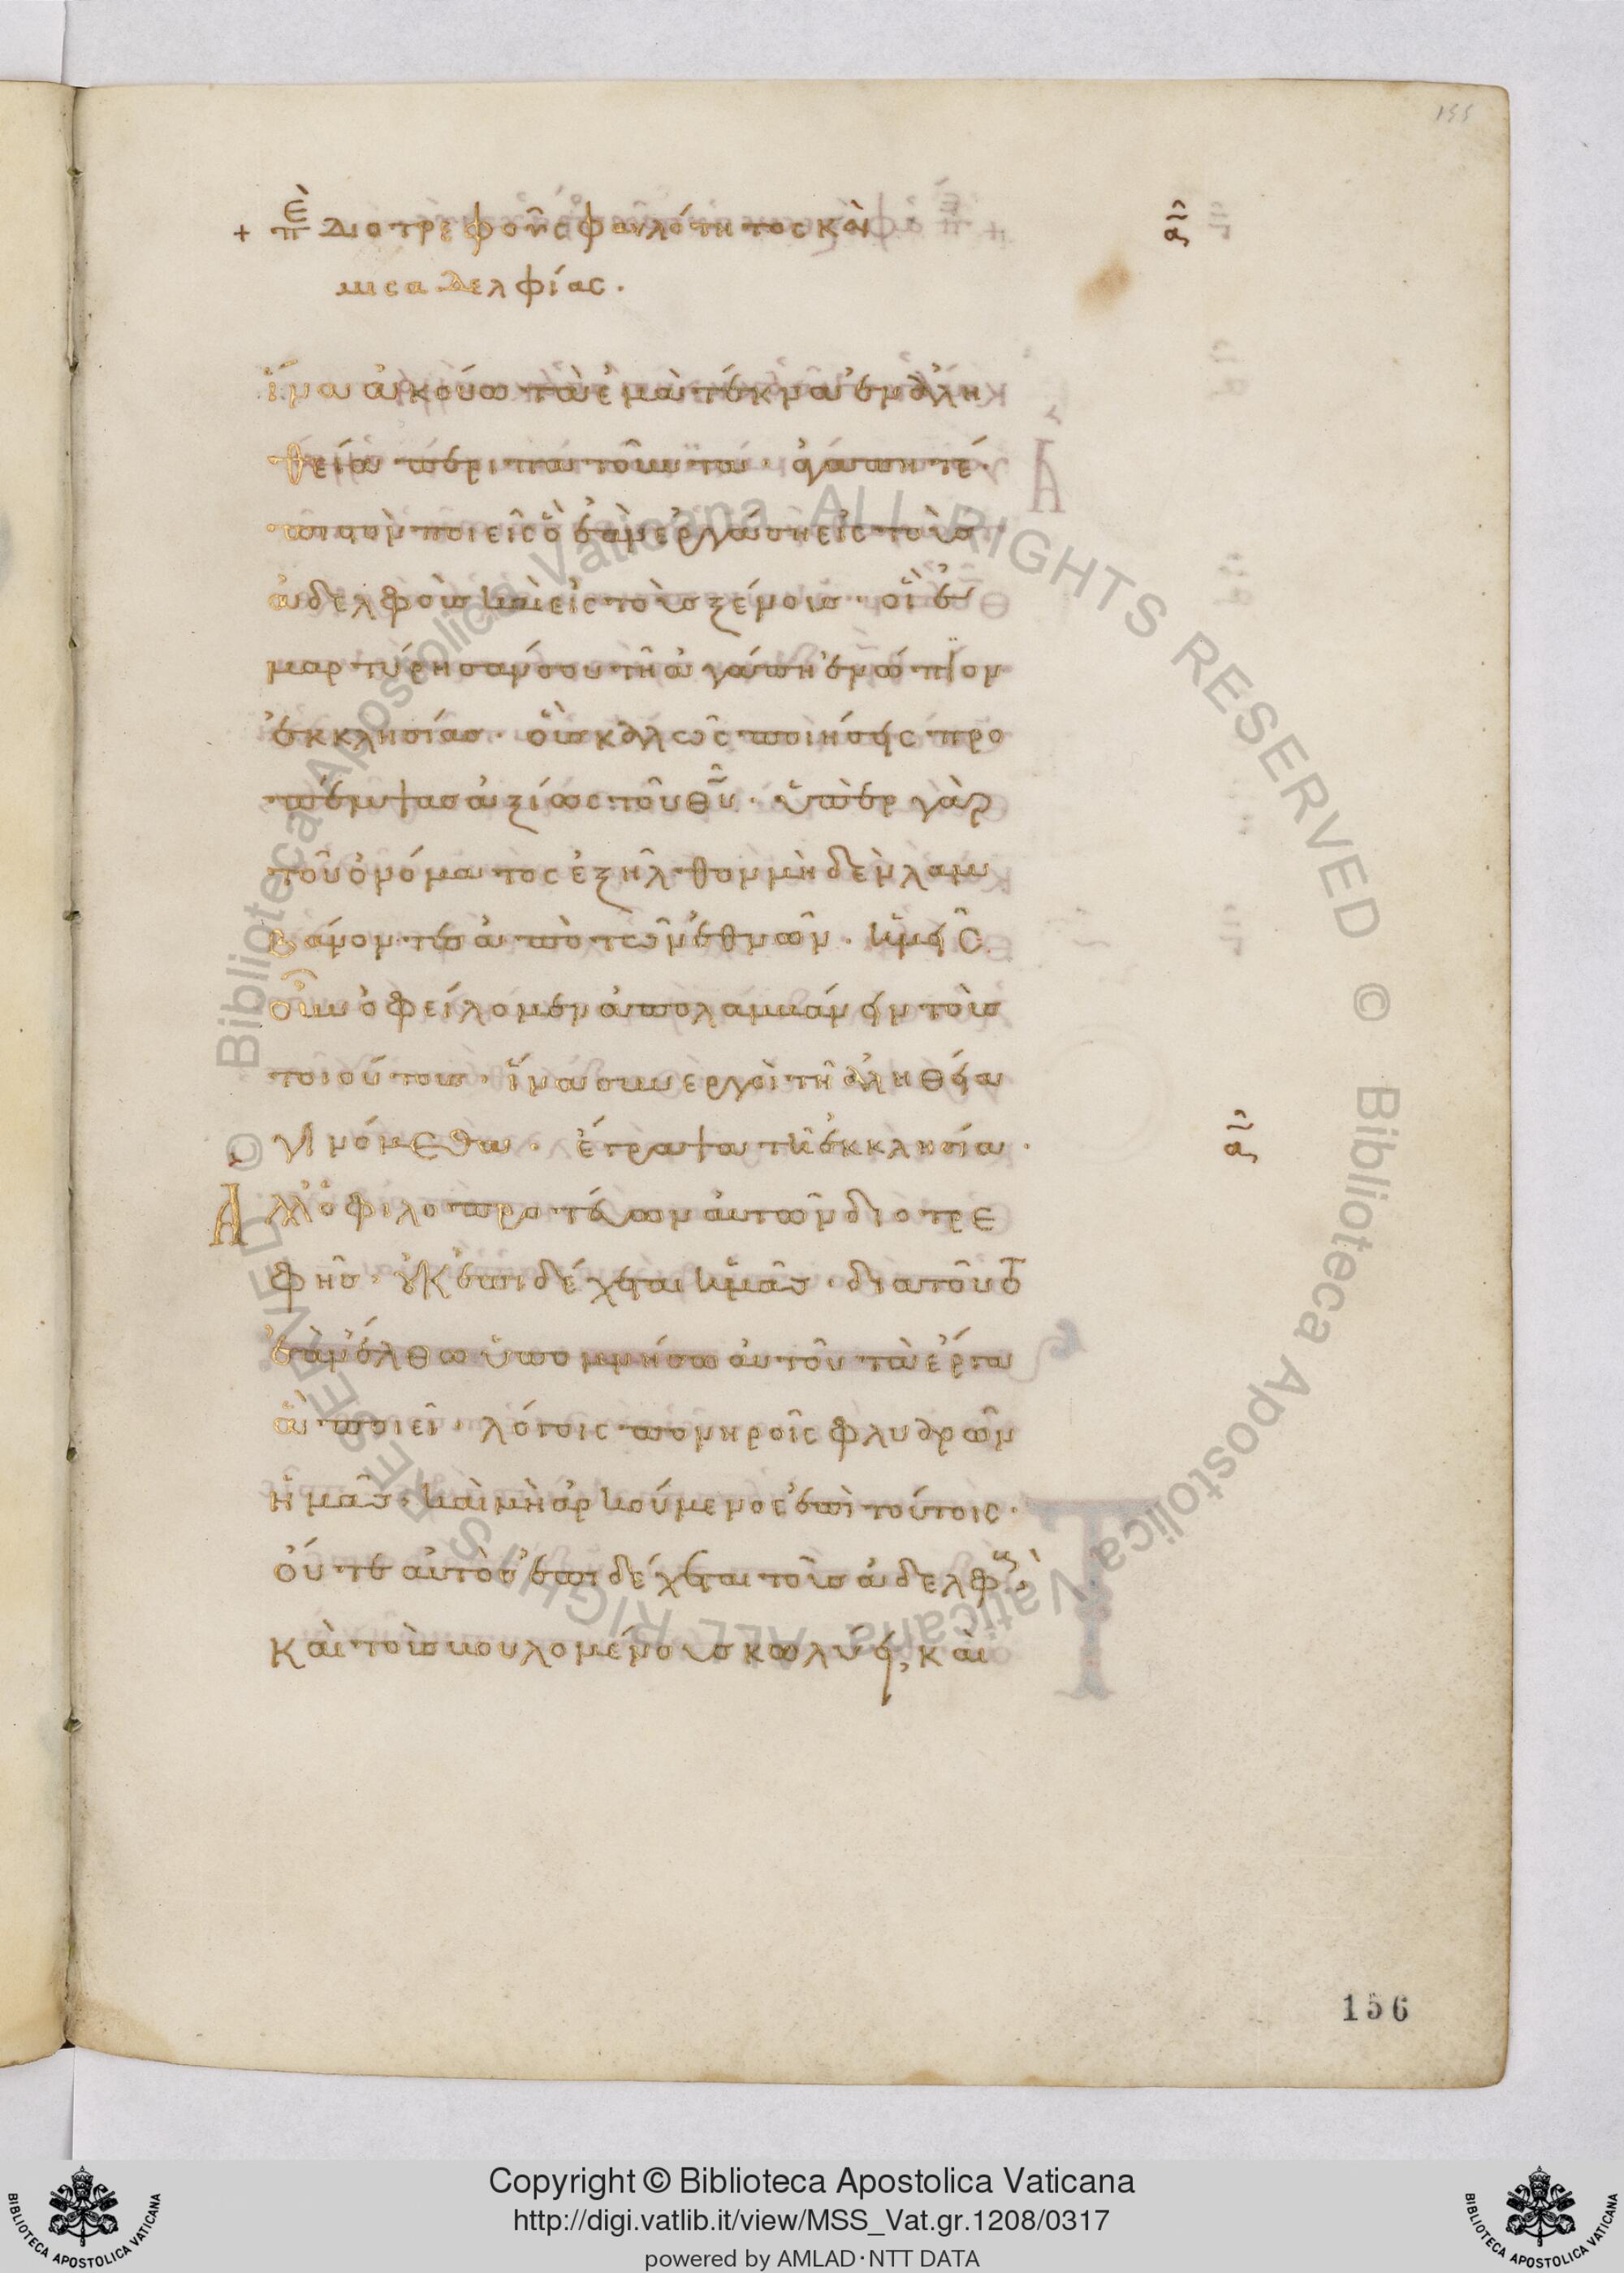 155
+ ἘΠ Διοτρεφοῦς φαυλότητος καὶ
μισαδελφίας.
ἵνα ἀκούω τὰ ἐμὰ τέκνα ἐν ἀλη
θεία περιπατοῦντα· ἀγαπητέ·
πιστὸν ποιεῖς ὃ ἐὰν ἐργάσῃ εἰς τοὺς
ἀδελφοὺς καὶ εἰς τοὺς ξένους· οἳ ἐ
μαρτύρησάν σου τῇ ἀγάπῃ ἐνώπϊον
ἐκκλησίας· οὓς καλῶς ποιήσεις προ
πέμψας ἀξίως τοῦ θῦ· ὑπὲρ γὰρ
τοῦ ὀνόματος ἐξῆλθον μὴδὲν λαμ
βάνοντες ἀπὸ τῶν ἐθνῶν· ἡμεῖς
οὖν ὀφείλομεν ἀπολαμβάνειν τοὺς
τοιούτους· ἵνα συνεργοὶ τῇ ἀληθεία
γινόμεθα· ἔγραψα τῇ ἐκκλησία·
Ἀλλ' ὁ φιλοπρωτεύων αὐτῶν διοτρε
φὴς· οὐκ ἐπιδέχεται ἡμᾶς· διατοῦτο
ἐὰν ἔλθω ὑπομνήσω αὐτοῦ τὰ ἔργα
ἃ ποιεῖ· λόγοις πονηροῖς φλυαρῶν
ἡμᾶς· καὶ μὴ ἀρκούμενος ἐπὶ τούτοις·
οὔτε αὐτὸς ἐπιδέχεται τοὺς ἀδελφοὺς,
καὶ τοὺς βουλομένους κωλύει, καὶ
156
© Biblioteca Apostolica Vaticana ALL RIGHTS RESERVED © Biblioteca Apostolica Vaticana ALL RIGHTS RESERVED
Copyright © Biblioteca Apostolica Vaticana
http://digi.vatlib.it/view/MSS_Vat.gr.1208/0317
powered by AMLAD·NTT DATA
BIBLIOTECA APOSTOLICA VATICANA
BIBLIOTECA APOSTOLICA VATICANA